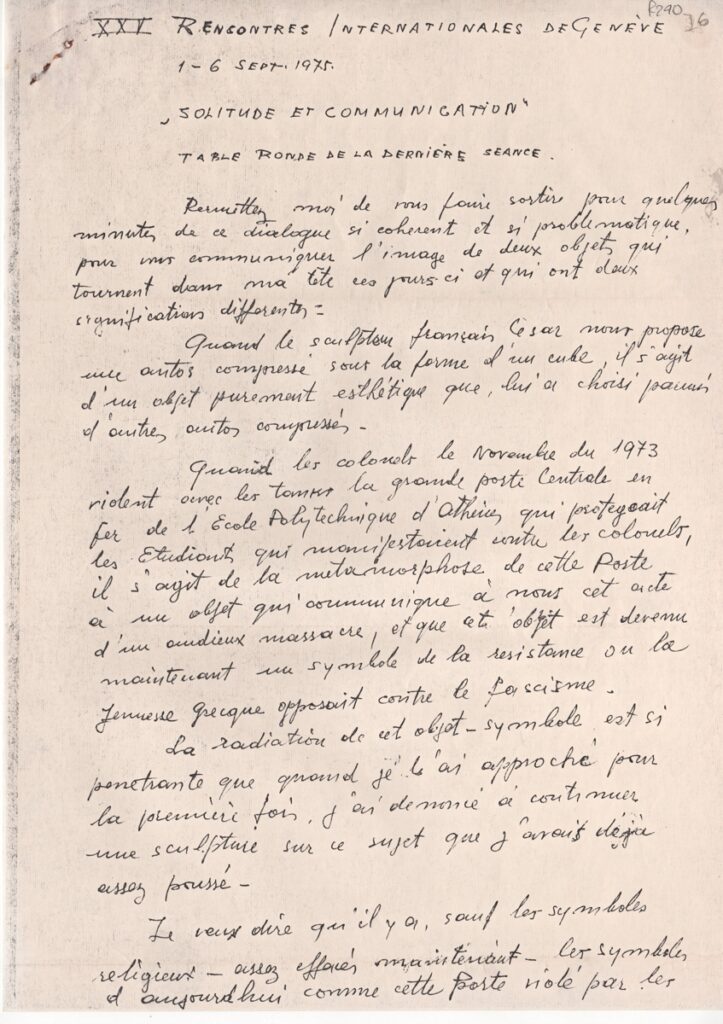 R290
26
XXV RENCONTRES INTERNATIONALES DE GENÈVE
1-6 SEPT. 1975.
„SOLITUDE ET COMMUNICATION"
TABLE RONDE DE LA DERNIÈRE SEANCE.
Permettez moi de vous faire sortire pour quelques
minutes de ce dialogue si coherent et si problematique,
pour vous communiquer l'image de deux objets qui
tournent dans ma tête ces jours ci et qui ont deux
significations differentes =
Quand le sculpteur français César nous propose
une autos compressé sous la forme d'un cube, il s'agit
d'un objet purement esthétique que, lui a choisi parmis
d'autres autos compressés -
Quand les colonels le Novembre du 1973
violent avec les tanks la grande poste Centrale en
fer de l'Ecole Polytechnique d'Athènes qui protegeait
les Etudiants qui manifestaient contre les colonels,
il s'agit de la metamorphose de cette Poste
à un objet qui communique à nous cet acte
d'un massacre, et que cet objet est devenu
maintenant un symbole de la resistance ou la
Jeunesse grecque opposait contre le fascisme.
La radiation de cet objet-symbole est si
penetrante que quand je l'ai approché pour
la première fois, j'ai denoncé à continuer
une sculpture sur ce sujet que j'avais déjà
assez poussé -
Je veux dire qu'il y a, sauf les symboles
religieux - assez effacés maintenant - les symboles
d'aujourd'hui comme cette Porte violé par les